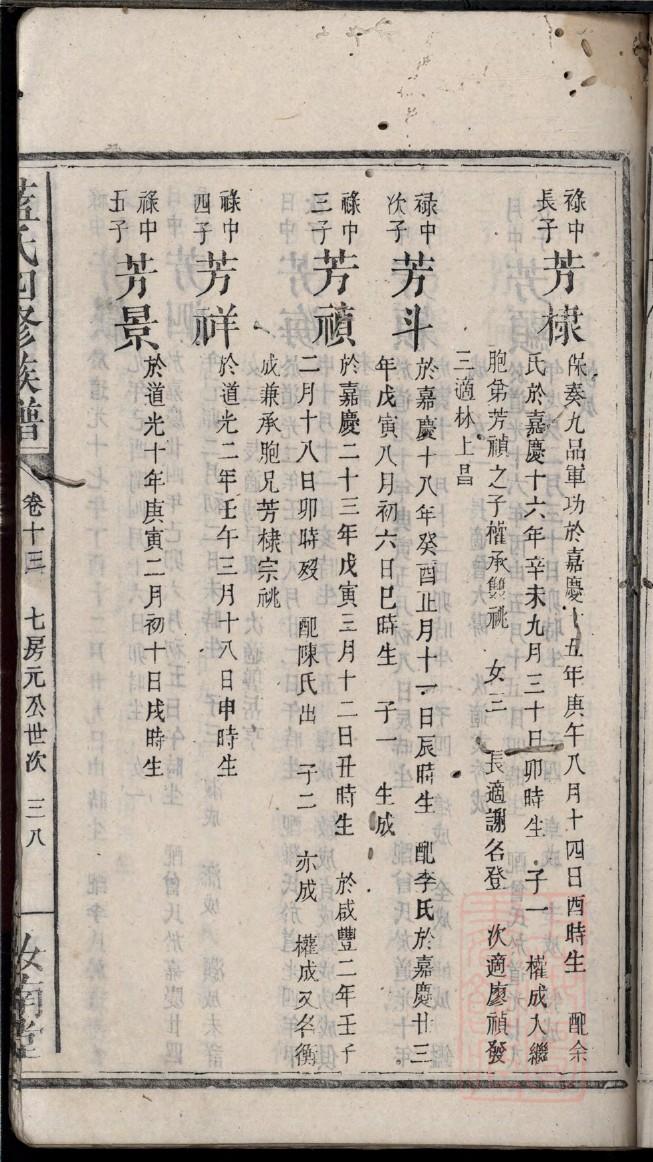 祿中
長子
芳棣
保奏九品軍功於嘉慶十五年庚午八月十四日酉時生　配余
氏於嘉慶十六年辛未九月三十日卯時生　子一　權成入繼
胞弟芳禎之子權承雙祧　女三　長適謝名登　次適廖禎發
三適林上昌
祿中
次子
芳斗
於嘉慶十八年癸酉正月十一日辰時生　配李氏於嘉慶廿三
年戊寅八月初六日巳時生　子一　生成
祿中
三子
芳禎
於嘉慶二十三年戊寅三月十二日丑時生　於咸豐二年壬子
二月十八日卯時歿　配陳氏出　子二　亦成　權成又名衡
成兼承胞兄芳棣宗祧
祿中
四子
芳祥
於道光二年壬午三月十八日申時生
祿中
五子
芳景
於道光十年庚寅二月初十日戌時生
藍氏四修族譜
卷十三　七房元公世次　三八
汝南堂